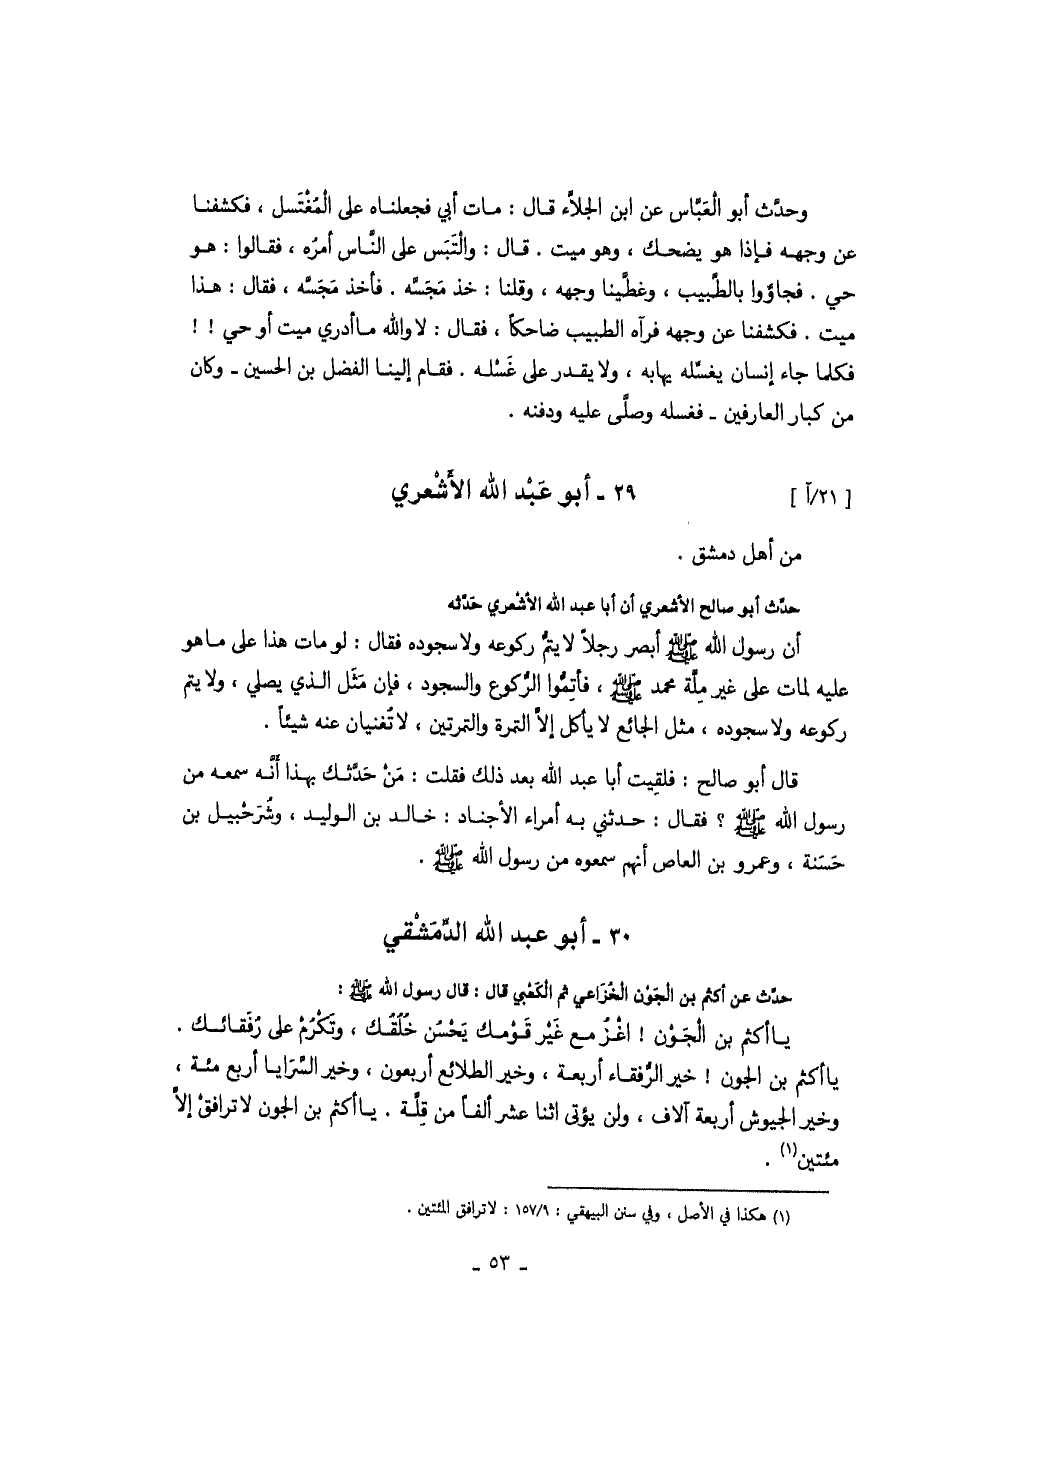 وحدَّث أبو الْعَبَّاس عن ابن الجلاَّء قال : مات أبي فجعلناه على الْمُغْتَسل ، فكشفنا
عن وجهه فإذا هو يضحك ، وهو ميت . قال : والْتَبَس على النَّاس أمرُه ، فقالوا : هو
حي . فجاؤوا بالطَّبيب ، وغطَّينا وجهه ، وقلنا : خذ مَجَسَّه . فأخذ مَجَسَّه ، فقال : هذا
ميت . فكشفنا عن وجهه فرآه الطبيب ضاحكاً ، فقال : لا والله ما أدري ميت أو حي ! !
فكلما جاء إنسان يغسِّله يهابه ، ولا يقدر على غَسْله . فقام إلينا الفضل بن الحسين ـ وكان
من كبار العارفين ـ فغسله وصلَّى عليه ودفنه .
[ ٢١/آ ] ٢٩ ـ أبو عَبْد الله الأَشْعري
من أهل دمشق .
حدَّث أبو صالح الأشعري أن أبا عبد الله الأشْعري حَدَّثه
أن رسول الله ﷺ أبصر رجلاً لا يتمُّ ركوعه ولا سجوده فقال : لو مات هذا على ما هو
عليه لمات على غير مِلَّة محمد ﷺ ، فأتِمُّوا الرُّكوع والسجود ، فإن مَثَل الذي يصلي ، ولا يتم
ركوعه ولا سجوده ، مثل الجائع لا يأكل إلاَّ التمرة والتمرتين ، لا تُغنيان عنه شيئاً .
قال أبو صالح : فلقِيت أبا عبد الله بعد ذلك فقلت : مَنْ حَدَّثك بهذا أنَّه سمعه من
رسول الله ﷺ ؟ فقال : حدثني به أمراء الأجناد : خالد بن الوليد ، وشُرَحْبيل بن
حَسَنة ، وعمرو بن العاص أنهم سمعوه من رسول الله ﷺ .
٣٠ ـ أبو عبد الله الدِّمَشْقي
حدَّث عن أكثم بن الجَوْن الخُزَاعي ثم الكَعْبي قال : قال رسول الله ﷺ :
يا أكثم بن الْجَوْن ! اغْزُ مع غَيْر قَوْمك يَحْسُن خُلُقُك ، وتَكْرُمْ على رُفَقائك .
يا أكثم بن الجون ! خير الرُّفقاء أربعة ، وخير الطلائع أربعون ، وخير السَّرَايا أربع مئة ،
وخير الجيوش أربعة آلاف ، ولن يؤتى اثنا عشر ألفاً من قِلَّة . يا أكثم بن الجون لا ترافقْ إلاَّ
مئتين(١) .
(١) هكذا في الأصل ، وفي سنن البيهقي : ١٥٧/٩ : لا ترافق المئتين .
ـ ٥٣ ـ